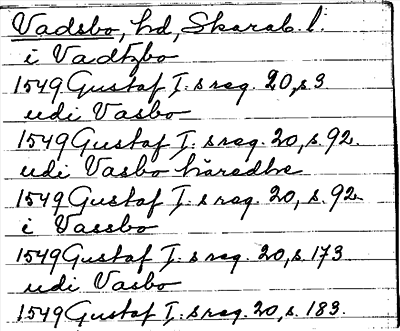 Vadsbo, hd, Skarab. l.
i Vadtzbo
1549 Gustaf I:s reg. 20, s. 3
udi Vasbo
1549 Gustaf I:s reg. 20, s. 92.
udi Vasbo häredhe
1549 Gustaf I:s reg. 20, s. 92.
i Vassbo
1549 Gustaf I:s reg. 20, s. 173
udi Vasbo
1549 Gustaf I:s reg. 20, s. 183.